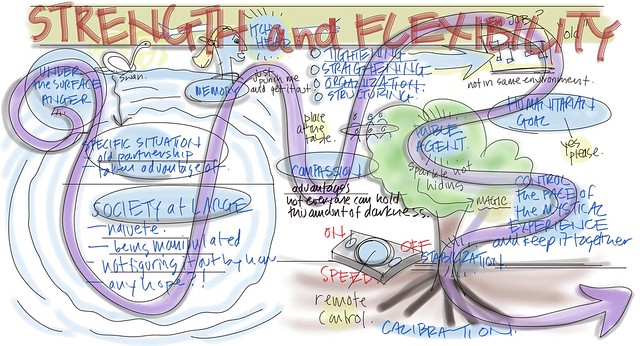 STRENGTH and FLEXIBILITY
ITCH
HEAD
UNDER
the SURFACE
ANGER
swan.
MEMORY
Just
punch me
and get it out
SPECIFIC SITUATION
old partnership
taken advantage of.
SOCIETY at LARGE
- naivete.
- being manipulated
- not figuring it out by now
- any hope?!
TIGHTENING
STRAIGHTENING
ORGANIZATION
STRUCTURING
place
at the
table.
COMPASSION
advantages
not everyone can hold
this amount of darkness.
ON
OFF
SPEED
remote
control.
NEW JOB?
old
not in same environment.
HUMANITARIAN
GOAL
yes
please.
DOUBLE
AGENT.
sparkle not
hiding
MAGIC
CONTROL
the PACE of
the MYSTICAL
EXPERIENCE
and keep it together
STABILIZATION
CALIBRATION.